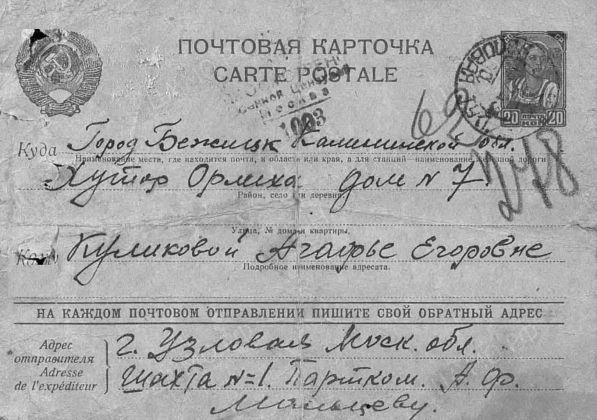 ПОЧТОВАЯ КАРТОЧКА
CARTE POSTALE
Москва
1093
20 ПОЧТА КОП. 20
Куда Город Бежицк Калининской обл.
Наименование места, где находится почта, и области или края, а для станций—наименование железной дороги
Хутор Орлиха дом N 7
Район, село или деревня
278
Улица, № дома и квартиры
Кому Куликовой Агафье Егоровне
Подробное наименование адресата.
НА КАЖДОМ ПОЧТОВОМ ОТПРАВЛЕНИИ ПИШИТЕ СВОЙ ОБРАТНЫЙ АДРЕС
Адрес отправителя г. Узловая Моск. обл.
Adresse de l'expéditeur Шахта N=1. Партком. А. Ф.
Мальцеву.